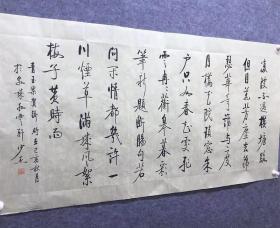 凌波不過橫塘路
但目送芳塵去錦
瑟華年誰與度
月橋花院瑣窗朱
户只有春知處飛
雲冉冉蘅皋暮彩
筆新題斷腸句若
問閒情都幾許一
川煙草滿城風絮
梅子黄時雨
青玉案賀鑄詞己亥秋月